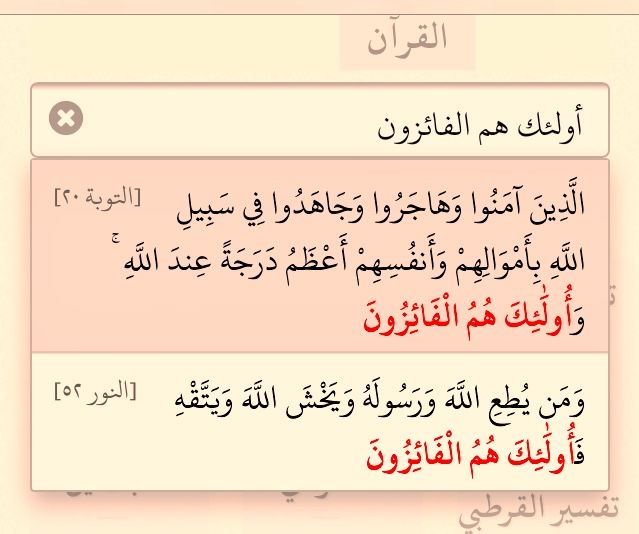 القرآن
أولئك هم الفائزون
الَّذِينَ آمَنُوا وَهَاجَرُوا وَجَاهَدُوا فِي سَبِيلِ [التوبة ٢٠]
اللَّهِ بِأَمْوَالِهِمْ وَأَنفُسِهِمْ أَعْظَمُ دَرَجَةً عِندَ اللَّهِ ۚ
وَأُولَٰئِكَ هُمُ الْفَائِزُونَ
وَمَن يُطِعِ اللَّهَ وَرَسُولَهُ وَيَخْشَ اللَّهَ وَيَتَّقْهِ [النور ٥٢]
فَأُولَٰئِكَ هُمُ الْفَائِزُونَ
تفسير القرطبي